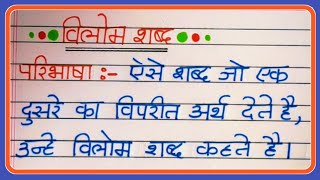 विलोम शब्द
परिभाषा :- ऐसे शब्द जो एक
दुसरे का विपरीत अर्थ देते है,
उन्हे विलोम शब्द कहते है।